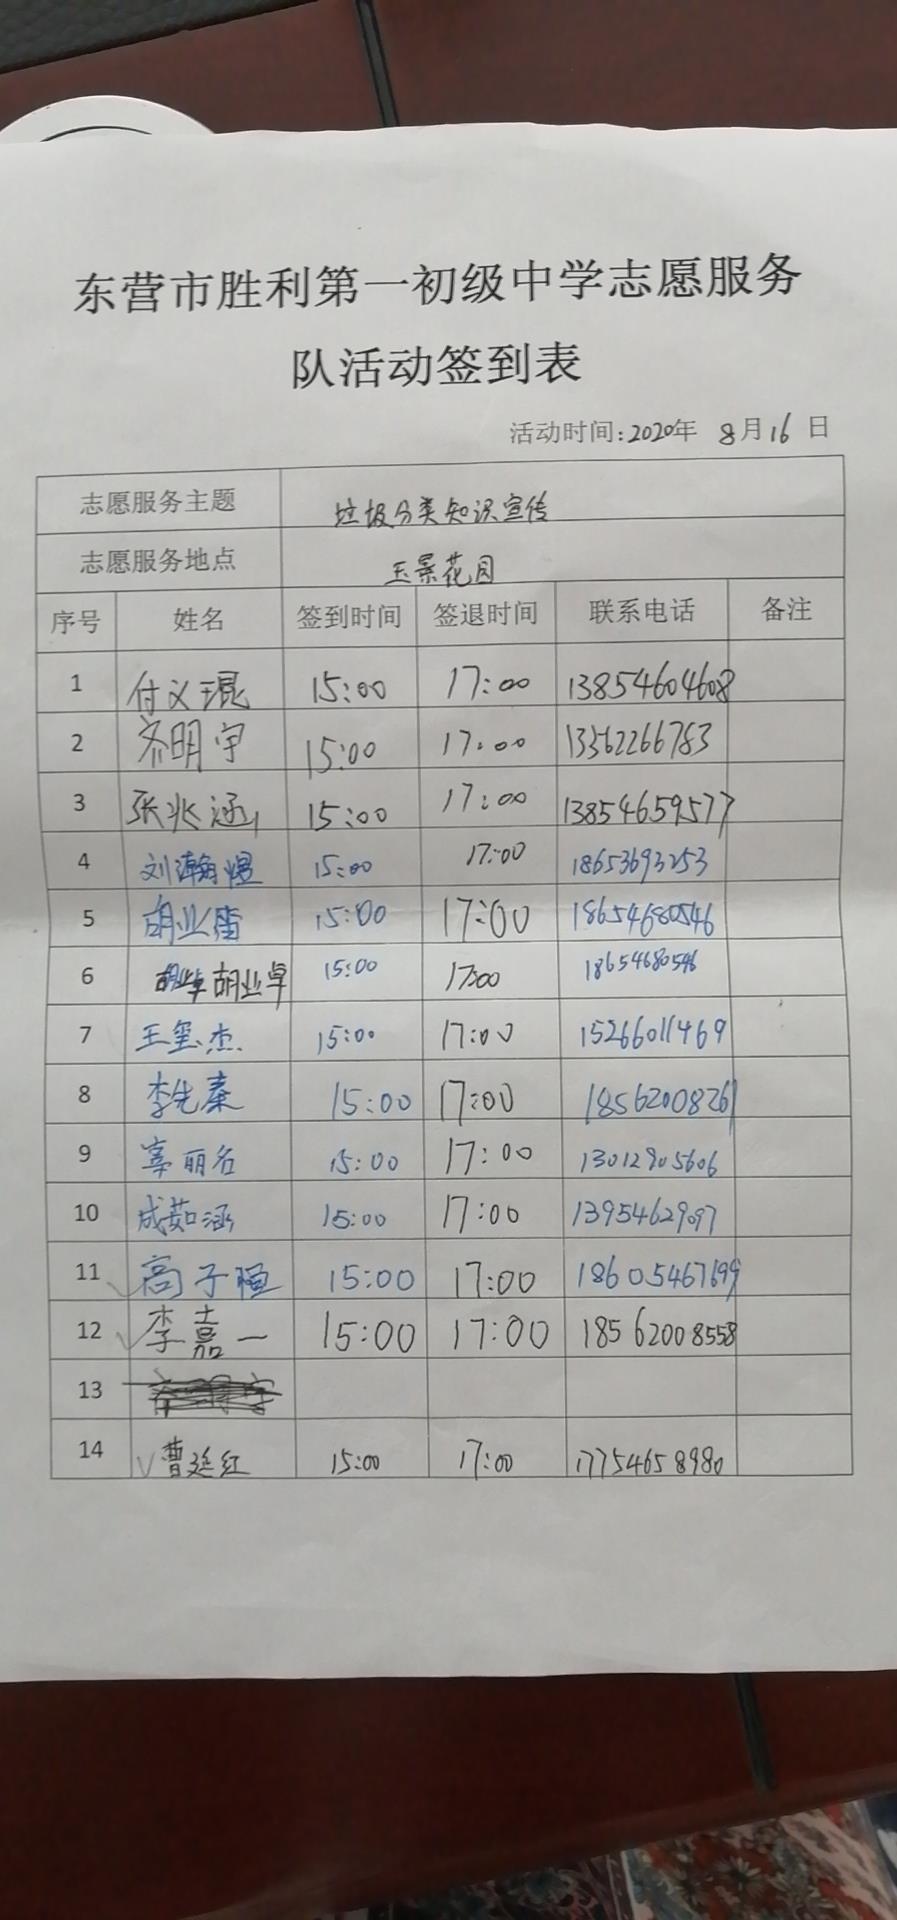 东营市胜利第一初级中学志愿服务
队活动签到表
活动时间:2020年 8月16日
志愿服务主题 垃圾分类知识宣传
志愿服务地点 玉景花园
序号 姓名 签到时间 签退时间 联系电话 备注
1 付义琨 15:00 17:00 13854604608
2 齐明宇 15:00 17:00 13562266783
3 张兆涵 15:00 17:00 13854659577
4 刘瀚煜 15:00 17:00 18653693253
5 胡业 15:00 17:00 18654680546
6 胡业卓 15:00 17:00 18654680546
7 王玺杰 15:00 17:00 15266011469
8 李先秦 15:00 17:00 18562008261
9 丽名 15:00 17:00 13012905606
10 成茹涵 15:00 17:00 13954629097
11 高子恒 15:00 17:00 18605467699
12 李嘉一 15:00 17:00 18562008558
13
14 曹延红 15:00 17:00 17754658980